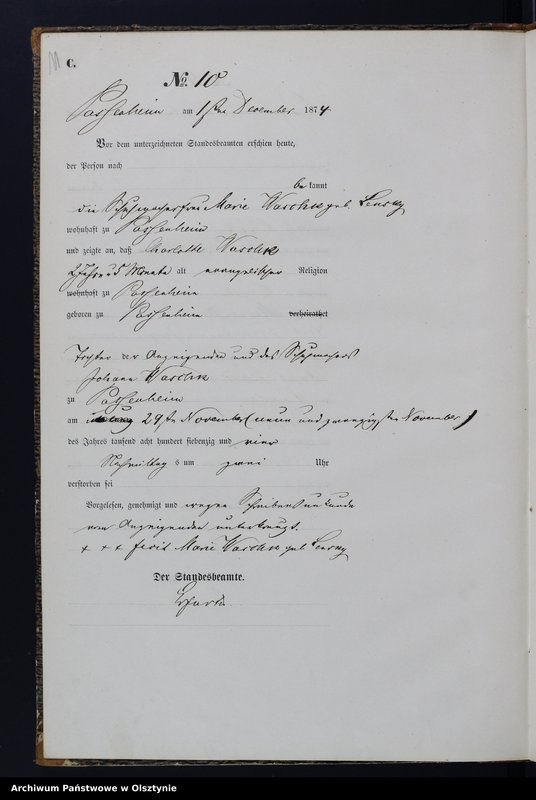 C.
№ 10
Passenheim am 1ten December 1874.
Vor dem unterzeichneten Standesbeamten erschien heute,
der Person nach
bekannt
die Schuhmacherfrau Marie Waschk geb. Lensky
wohnhaft zu Passenheim
und zeigte an, daß Charlotte Waschk
2 Jahr u 5 Monate alt evangelischer Religion
wohnhaft zu Passenheim
geboren zu Passenheim verheirathet
Tochter der Anzeigenden und des Schuhmachers
Johann Waschk
zu Passenheim
am 29ten November (neun und zwanzigsten November)
des Jahres tausend acht hundert siebenzig und vier
Nachmittags um zwei Uhr
verstorben sei
Vorgelesen, genehmigt und wegen Schreibensunkunde
vom Anzeigenden unterkreuzt.
+ + + fecit Marie Waschk geb Lensky
Der Standesbeamte.
Archiwum Państwowe w Olsztynie